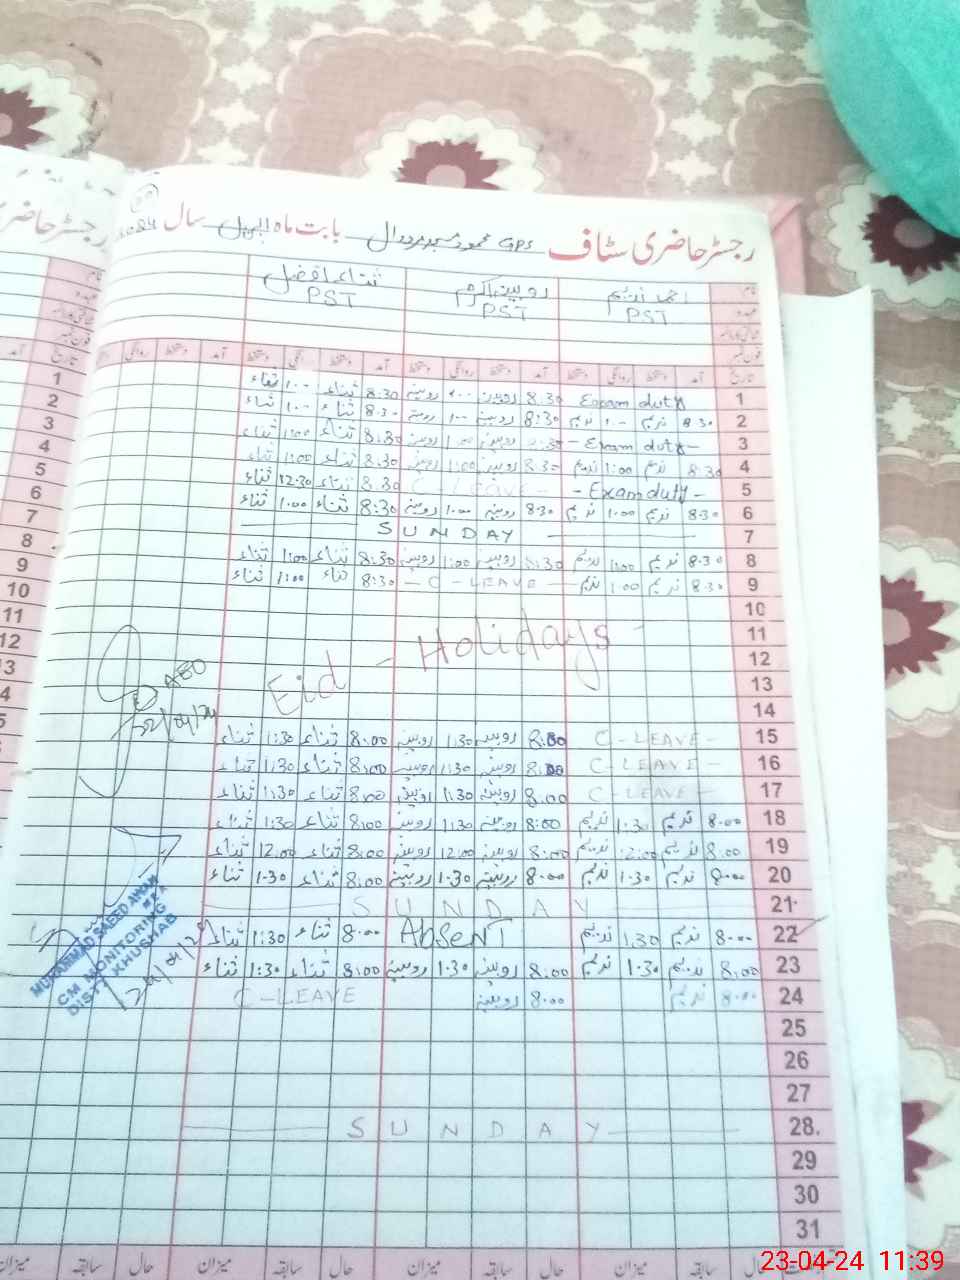 رجسٹر حاضری سٹاف GPS محمود مسجد بابت ماہ اپریل سال 2024
نام احمد ندیم روبینہ اکرم ثناء افضل
عہدہ PST PST PST
فون نمبر
تاریخ آمد دستخط روانگی دستخط آمد دستخط روانگی دستخط آمد دستخط روانگی دستخط آمد دستخط روانگی
1 Exam duty 8.30 روبینہ روبینہ 8.30 ثناء 1.00 ثناء
2 8.30 ندیم 1.00 ندیم 8:30 روبینہ 1.00 روبینہ 8.30 ثناء 1.00 ثناء
3 - Exam duty - روبینہ روبینہ 8:30 ثناء 1:00 ثناء
4 8.30 ندیم 1:00 ندیم 8.30 روبینہ 1:00 روبینہ 8.30 ثناء 1:00 ثناء
5 - Exam duty - C - LEAVE - 8.30 ثناء 12.30 ثناء
6 8.30 ندیم 1.00 ندیم 8.30 روبینہ 1.00 روبینہ 8:30 ثناء 1:00 ثناء
7 SUNDAY
8 8.30 ندیم 1:00 ندیم 8:30 روبینہ 1:00 روبینہ 8:30 ثناء 1:00 ثناء
9 8.30 ندیم 1.00 ندیم - C - LEAVE - 8:30 ثناء 1:00 ثناء
10
11
Eid - Holidays
12
13
14
15 C - LEAVE - 8:00 روبینہ 1:30 روبینہ 8:00 ثناء 1:30 ثناء
16 C - LEAVE - 8:00 روبینہ 1:30 روبینہ 8:00 ثناء 1:30 ثناء
17 C - LEAVE - 8:00 روبینہ 1:30 روبینہ 8:00 ثناء 1:30 ثناء
18 8.00 ندیم 1:30 ندیم 8:00 روبینہ 1:30 روبینہ 8:00 ثناء 1:30 ثناء
19 8.00 ندیم 12:00 ندیم 8:00 روبینہ 12:00 روبینہ 8:00 ثناء 12:00 ثناء
20 8.00 ندیم 1.30 ندیم 8.00 روبینہ 1.30 روبینہ 8:00 ثناء 1.30 ثناء
21 SUNDAY
22 8.00 ندیم 1.30 ندیم AbsenT 8.00 ثناء 1:30 ثناء
23 8:00 ندیم 1.30 ندیم 8:00 روبینہ 1.30 روبینہ 8:00 ثناء 1:30 ثناء
24 8.00 ندیم 8.00 روبینہ C - LEAVE
25
26
27
28. SUNDAY
29
30
31
حال سابقہ میزان حال سابقہ میزان حال سابقہ میزان
AEO
22/04/24
MUHAMMAD SAEED AWAN
MEA
CM MONITORING
DISTT KHUSHAB
رجسٹر حاضری
نام
عہدہ
فون نمبر
تاریخ
آمد
1
2
3
4
5
6
7
8
9
10
11
12
23-04-24 11:39